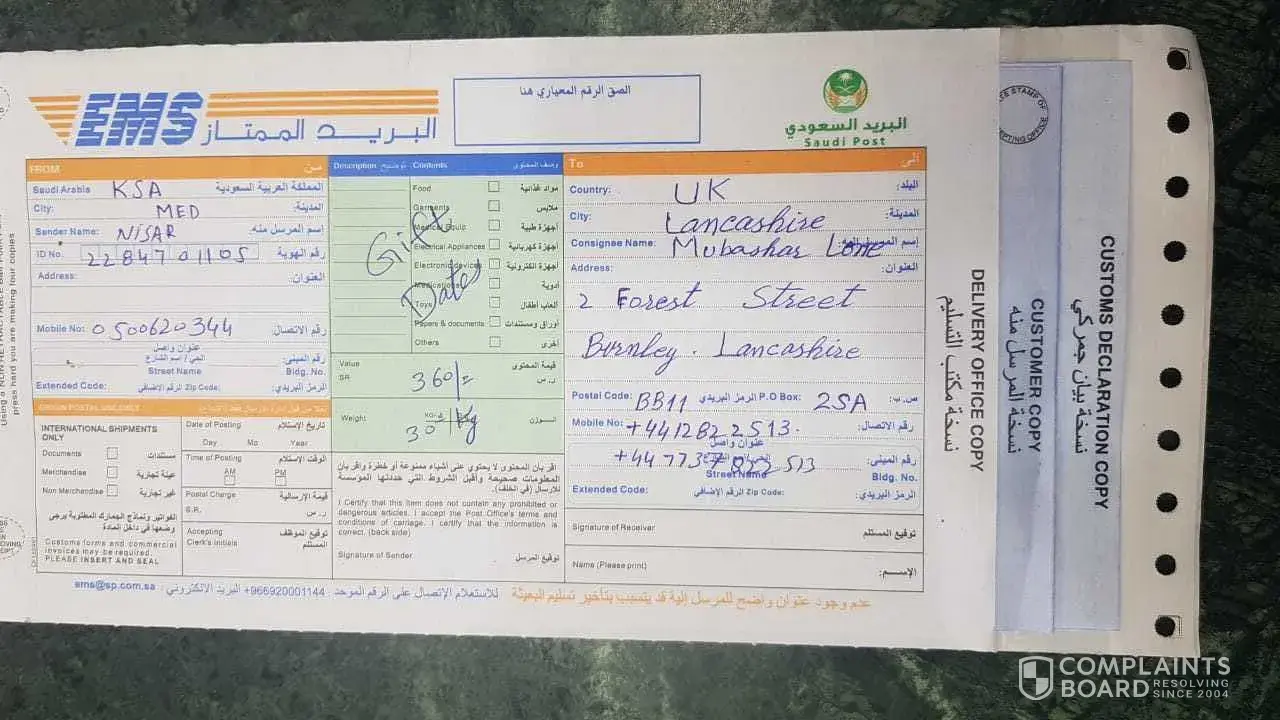 EMS
البريد الممتاز
الصق الرقم المعياري هنا
البريد السعودي
Saudi Post
FROM من
Saudi Arabia KSA المملكة العربية السعودية
City: MED المدينة:
Sender Name: NISAR اسم المرسل منه:
ID No. 2284701105 رقم الهوية
Address: العنوان:
Mobile No: 0500620344 رقم الاتصال
عنوان واصل
الحي / اسم الشارع رقم المبنى:
Street Name Bldg. No:
Extended Code: الرقم الإضافي Zip Code: الرمز البريدي:
ORIGIN POSTAL USE ONLY
INTERNATIONAL SHIPMENTS
ONLY
Documents مستندات
Merchandise عينة تجارية
Non Merchandise غير تجارية
الفواتير ونماذج الجمارك المطلوبة يرجى
وضعها في داخل المادة
Customs forms and commercial
invoices may be required.
PLEASE INSERT AND SEAL
Date of Posting تاريخ الإستلام
Day Mo Year
Time of Posting الوقت الإستلام
AM PM
Postal Charge قيمة الإرسالية
S.R. ر. س
Accepting توقيع الموظف
Clerk's Initials المستلم
Description توضيح Contents وصف المحتوى
Food مواد غذائية
Garments ملابس
Medical Equip أجهزة طبية
Electrical Appliances أجهزة كهربائية
Electronic devices أجهزة الكترونية
Medications أدوية
Toys ألعاب أطفال
Papers & documents أوراق ومستندات
Others أخرى
Gift
Dates
Value قيمة المحتوى
SR 360/= ر. س
Weight: KG 30 Kg الوزن
اقر بان المحتوى لا يحتوي على أشياء ممنوعة أو خطرة واقر بان
المعلومات صحيحة وأقبل الشروط التي حددتها المؤسسة
للإرسال (في الخلف).
I Certify that this item does not contain any prohibited or
dangerous articles. I accept the Post Office's terms and
conditions of carriage. I certify that the information is
correct. (back side)
Signature of Sender توقيع المرسل
To الى
Country: UK البلد:
City: Lancashire المدينة:
Consignee Name: Mubashar Lone
Address: العنوان:
2 Forest Street
Burnley. Lancashire
Postal Code: BB11 الرمز البريدي P.O Box: 2SA ص. ب:
Mobile No: رقم الاتصال:
عنوان واصل
رقم المبنى:
Street Name Bldg. No:
Extended Code: الرقم الإضافي Zip Code: الرمز البريدي:
Signature of Receiver توقيع المستلم
Name (Please print) الإســم:
ems@sp.com.sa للاستعلام الإتصال على الرقم الموحد: 966920001144+ البريد الالكتروني:
عدم وجود عنوان واضح للمرسل إلية قد يتسبب بتأخير تسليم البعيثة
DELIVERY OFFICE COPY
نسخة مكتب التسليم
CUSTOMER COPY
نسخة المرسل منه
CUSTOMS DECLARATION COPY
نسخة بيان جمركي
press hard you are making four copies
COMPLAINTS
BOARD RESOLVING
SINCE 2004